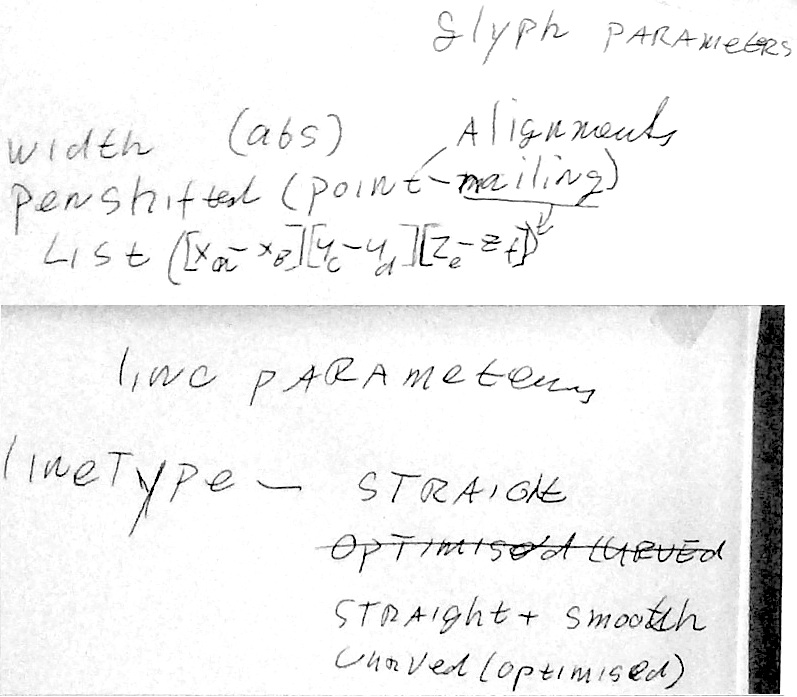 Glyph PARAMETERS
Alignments
width (abs)
Penshifted (point-mailing)
List ([xa-xB][yc-yd][Ze-Zf])
line PARAMETERS
lineType — STRAIGHt
OPTIMISED CURVED
STRAIght + smooth
Curved (optimised)